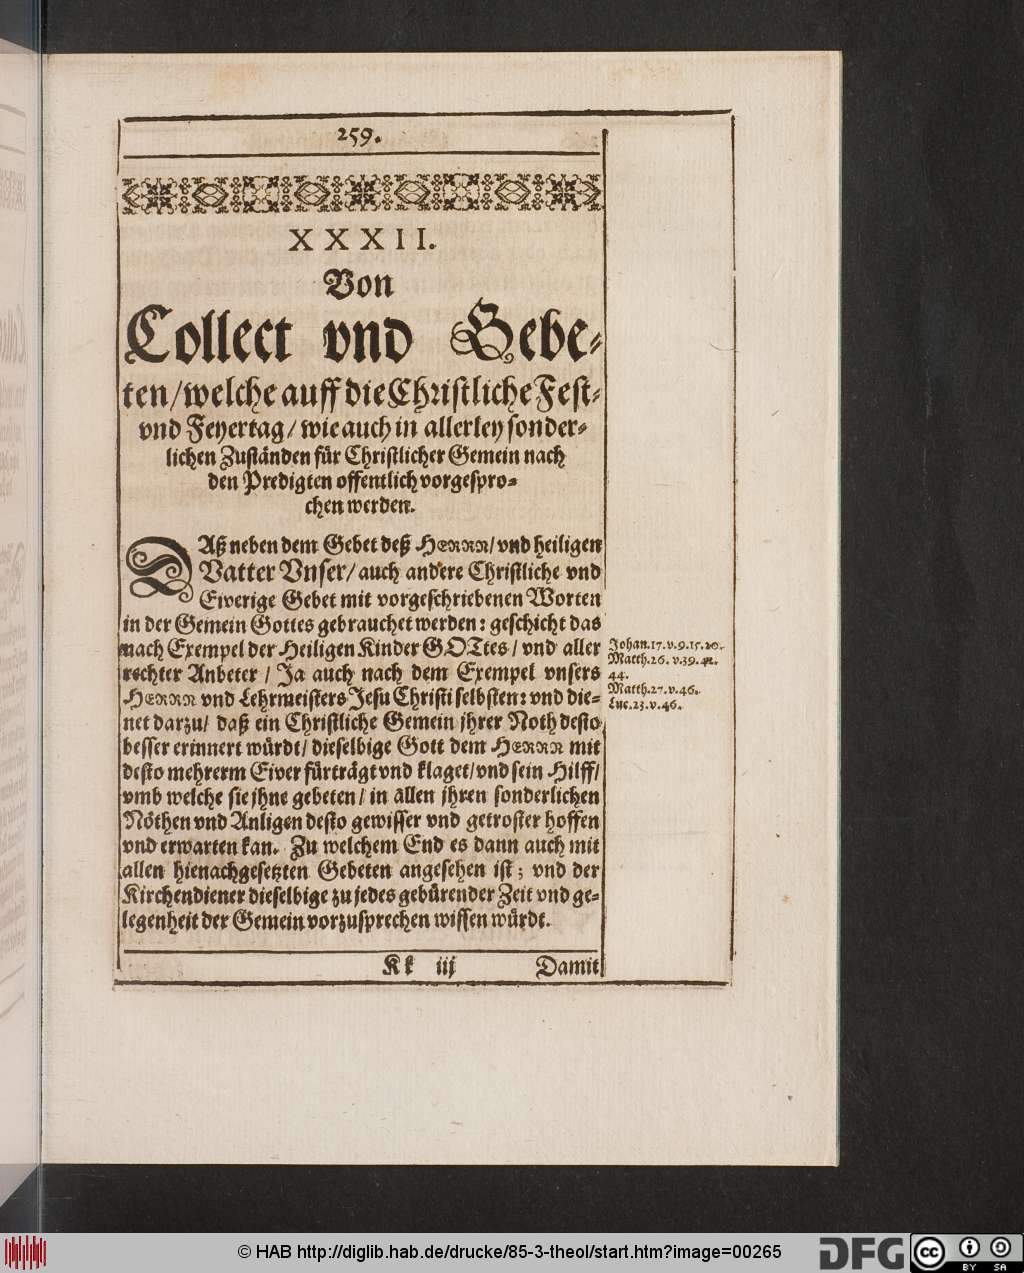 259.
XXXII.
Von
Collect vnd Gebe-
ten/welche auff die Christliche Fest-
vnd Feyertag/ wie auch in allerley sonder-
lichen Zuständen für Christlicher Gemein nach
den Predigten offentlich vorgespro-
chen werden.
DAß neben dem Gebet deß HERRN/ vnd heiligen
Vatter Vnser/ auch andere Christliche vnd
Eiverige Gebet mit vorgeschriebenen Worten
in der Gemein Gottes gebrauchet werden: geschicht das
nach Exempel der Heiligen Kinder GOTtes/ vnd aller
rechter Anbeter/ Ja auch nach dem Exempel vnsers
HERRN vnd Lehrmeisters Jesu Christi selbsten: vnd die-
net darzu/ daß ein Christliche Gemein jhrer Noth desto
besser erinnert würdt/ dieselbige Gott dem HERRN mit
desto mehrerm Eiver fürträgt vnd klaget/vnd sein Hilff/
vmb welche sie jhne gebeten/ in allen jhren sonderlichen
Nöthen vnd Anligen desto gewisser vnd getroster hoffen
vnd erwarten kan. Zu welchem End es dann auch mit
allen hienachgesetzten Gebeten angesehen ist; vnd der
Kirchendiener dieselbige zu jedes gebürender Zeit vnd ge-
legenheit der Gemein vorzusprechen wissen würdt.
Johan.17.v.9.15.20.
Matth.26. v.39.42.
44.
Matth.27.v.46.
Luc.23.v.46.
Kk iij Damit
© HAB http://diglib.hab.de/drucke/85-3-theol/start.htm?image=00265
DFG
cc BY SA